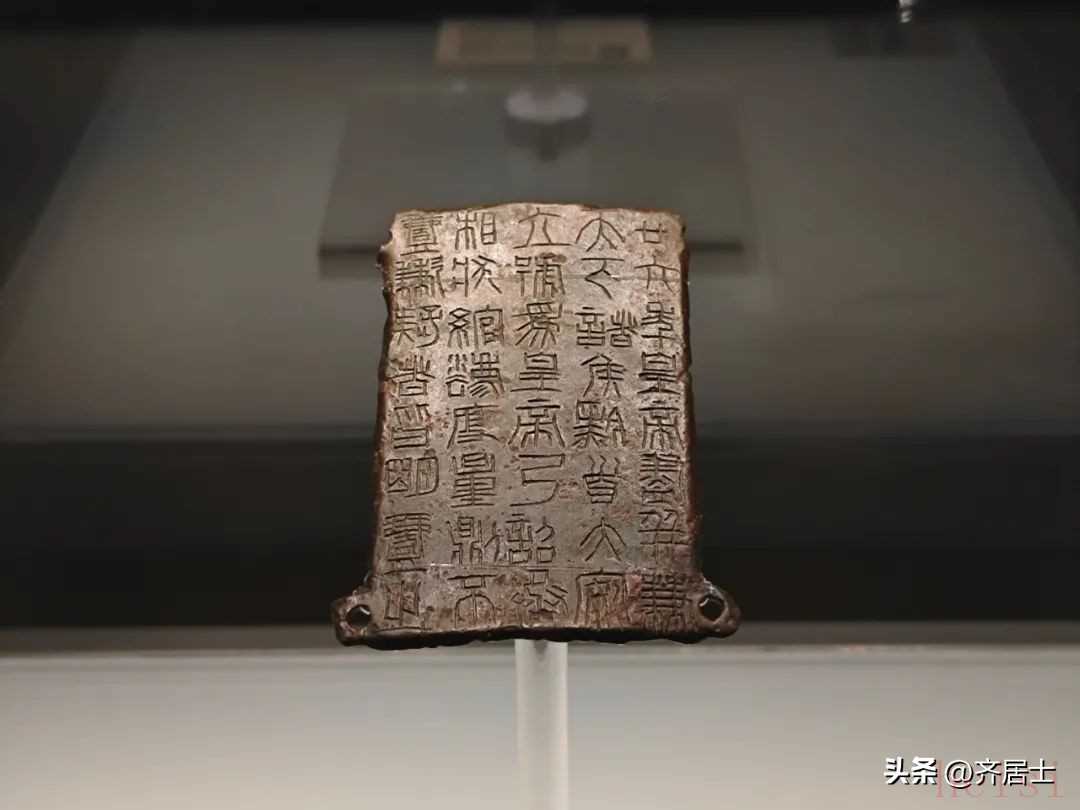 廿六年皇帝盡并兼
天下諸侯黔首大安
立號為皇帝乃詔丞
相狀綰灋度量則不
壹歉疑者皆明壹之
头条 @齐居士